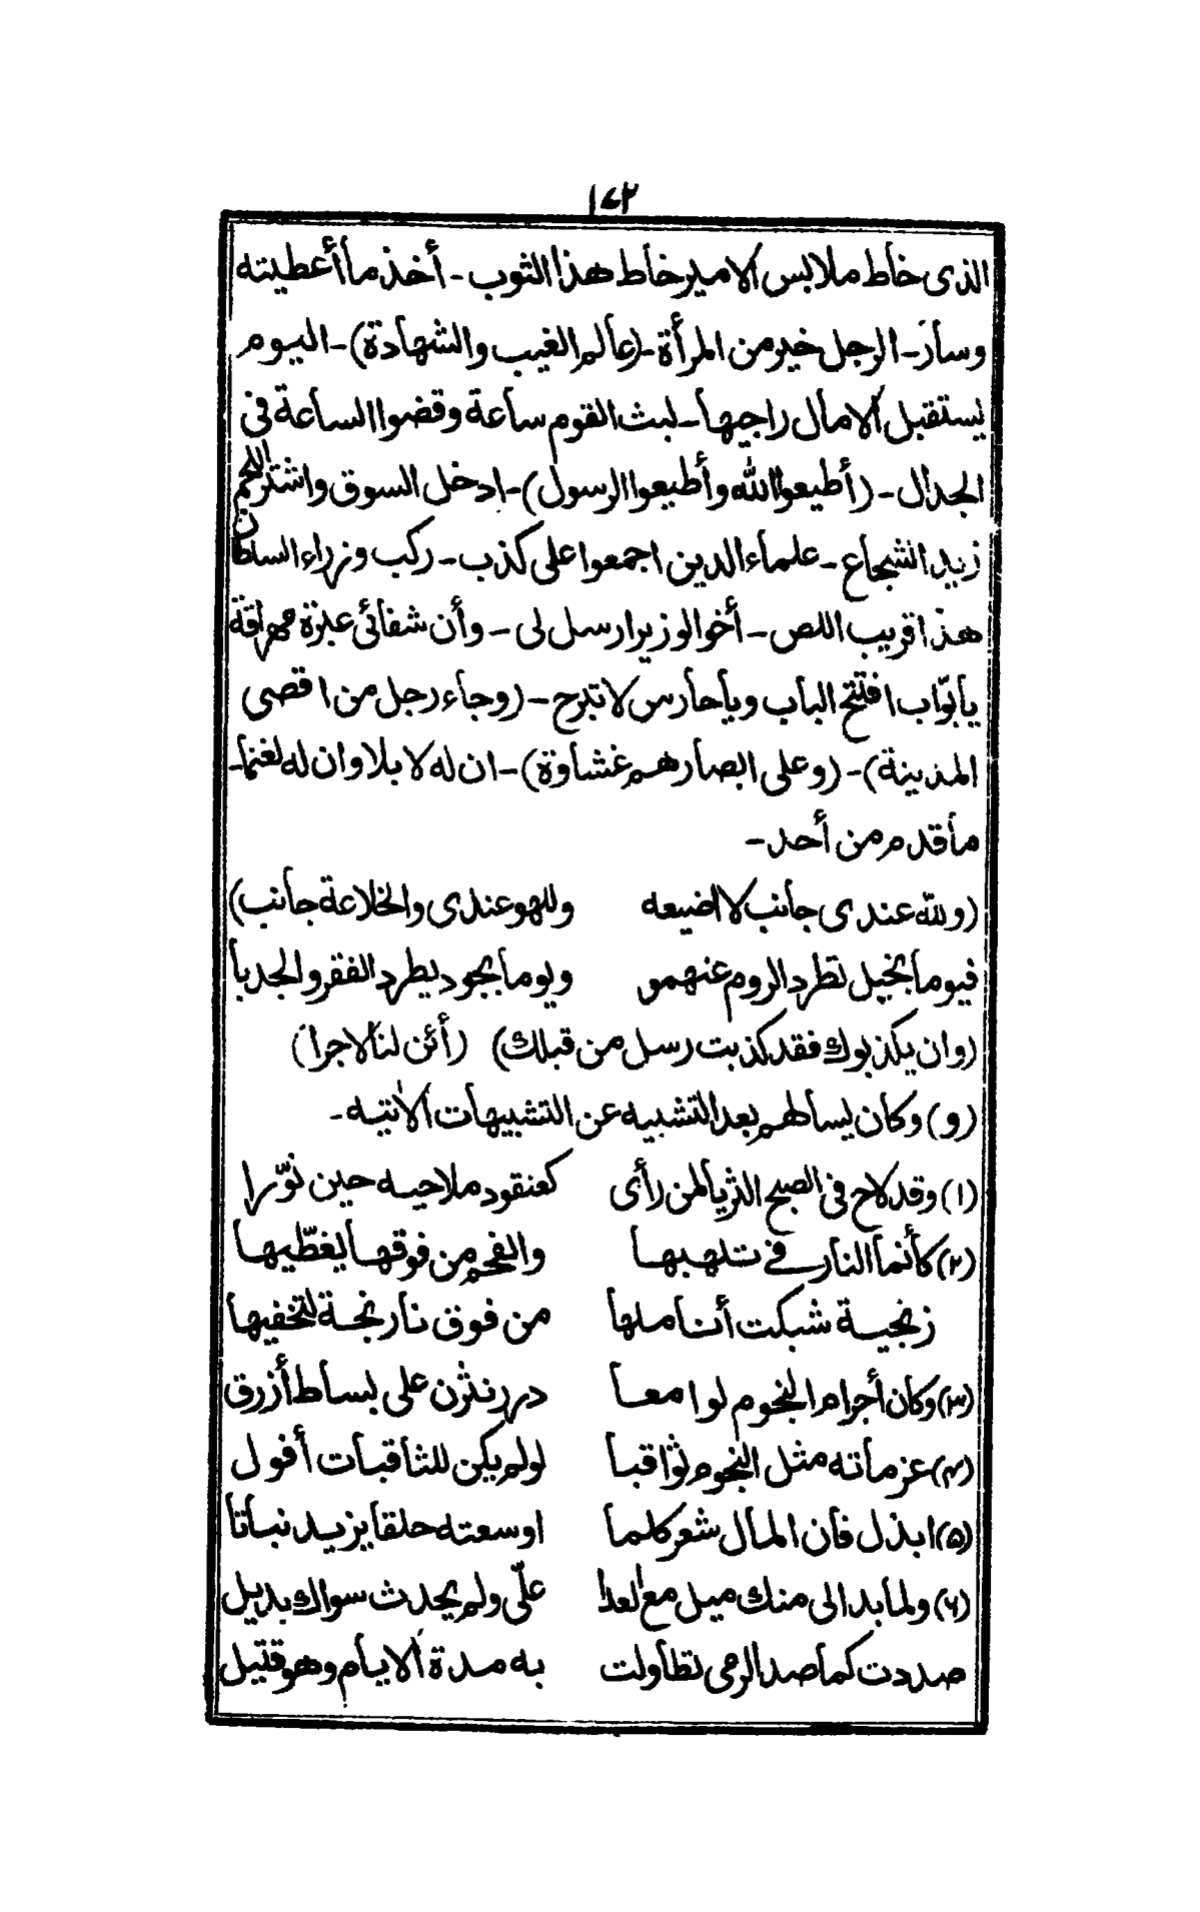 ١٤٢
الذى خاط ملابس الامير خاط هذا الثوب - أخذ ما أعطيته
وسار - الرجل خير من المرأة - (عالم الغيب والشهادة) - اليوم
يستقبل الامال راجيها - لبث القوم ساعة وقضوا الساعة فى
الجدال - (أطيعوا الله وأطيعوا الرسول) - ادخل السوق واشتر اللحم
زيد الشجاع - علماء الدين اجمعوا على كذب - ركب وزراء السلطان
هذا قريب اللص - أخو الوزير ارسل لى - وأن شفائى عبرة مهراقة
يا بوّاب افتتح الباب ويا حارس لا تبرح - (وجاء رجل من اقصى
المدينة) - (وعلى ابصارهم غشاوة) - ان له لابلا وان له لغنما -
ما قدم من أحد -
(ولله عندى جانب لا اضيعه وللهو عندى والخلاعة جانب)
فيوما بخيل تطرد الروم عنهمو ويوما بجود يطرد الفقر والجدبا
(وان يكذبوك فقد كذبت رسل من قبلك) (أئن لنا لاجرا)
(و) وكان يسالهم بعد التشبيه عن التشبيهات الاتيه -
(١) وقد لاح فى الصبح الثريا لمن رأى كعنقود ملاحيه حين نوّرا
(٢) كأنما النار فى تلهبها والفحم من فوقها يغطّيها
زنجية شبكت أناملها من فوق نارنجة لتخفيها
(٣) وكان أجرام النجوم لوامعا درر نثرن على بساط أزرق
(٤) عزماته مثل النجوم ثواقبا لو لم يكن للثاقبات أفول
(٥) ابذل فان المال شعر كلما اوسعته حلقا يزيد نباتا
(٦) ولما بدا لى منك ميل مع العدا علّى ولم يحدث سواك بديل
صددت كما صد الرمى تطاولت به مدة الايام وهو قتيل